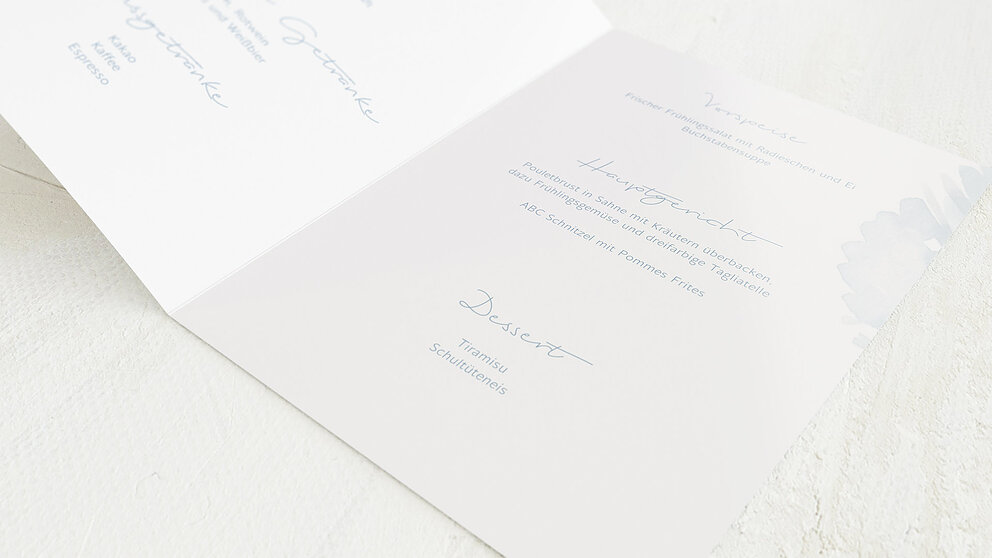 Getränke
Rotwein
und Weißbier
Kakao
Kaffee
Espresso
Vorspeise
Frischer Frühlingssalat mit Radieschen und Ei
Buchstabensuppe
Hauptgericht
Pouletbrust in Sahne mit Kräutern überbacken,
dazu Frühlingsgemüse und dreifarbige Tagliatelle
ABC Schnitzel mit Pommes Frites
Dessert
Tiramisu
Schultüteneis